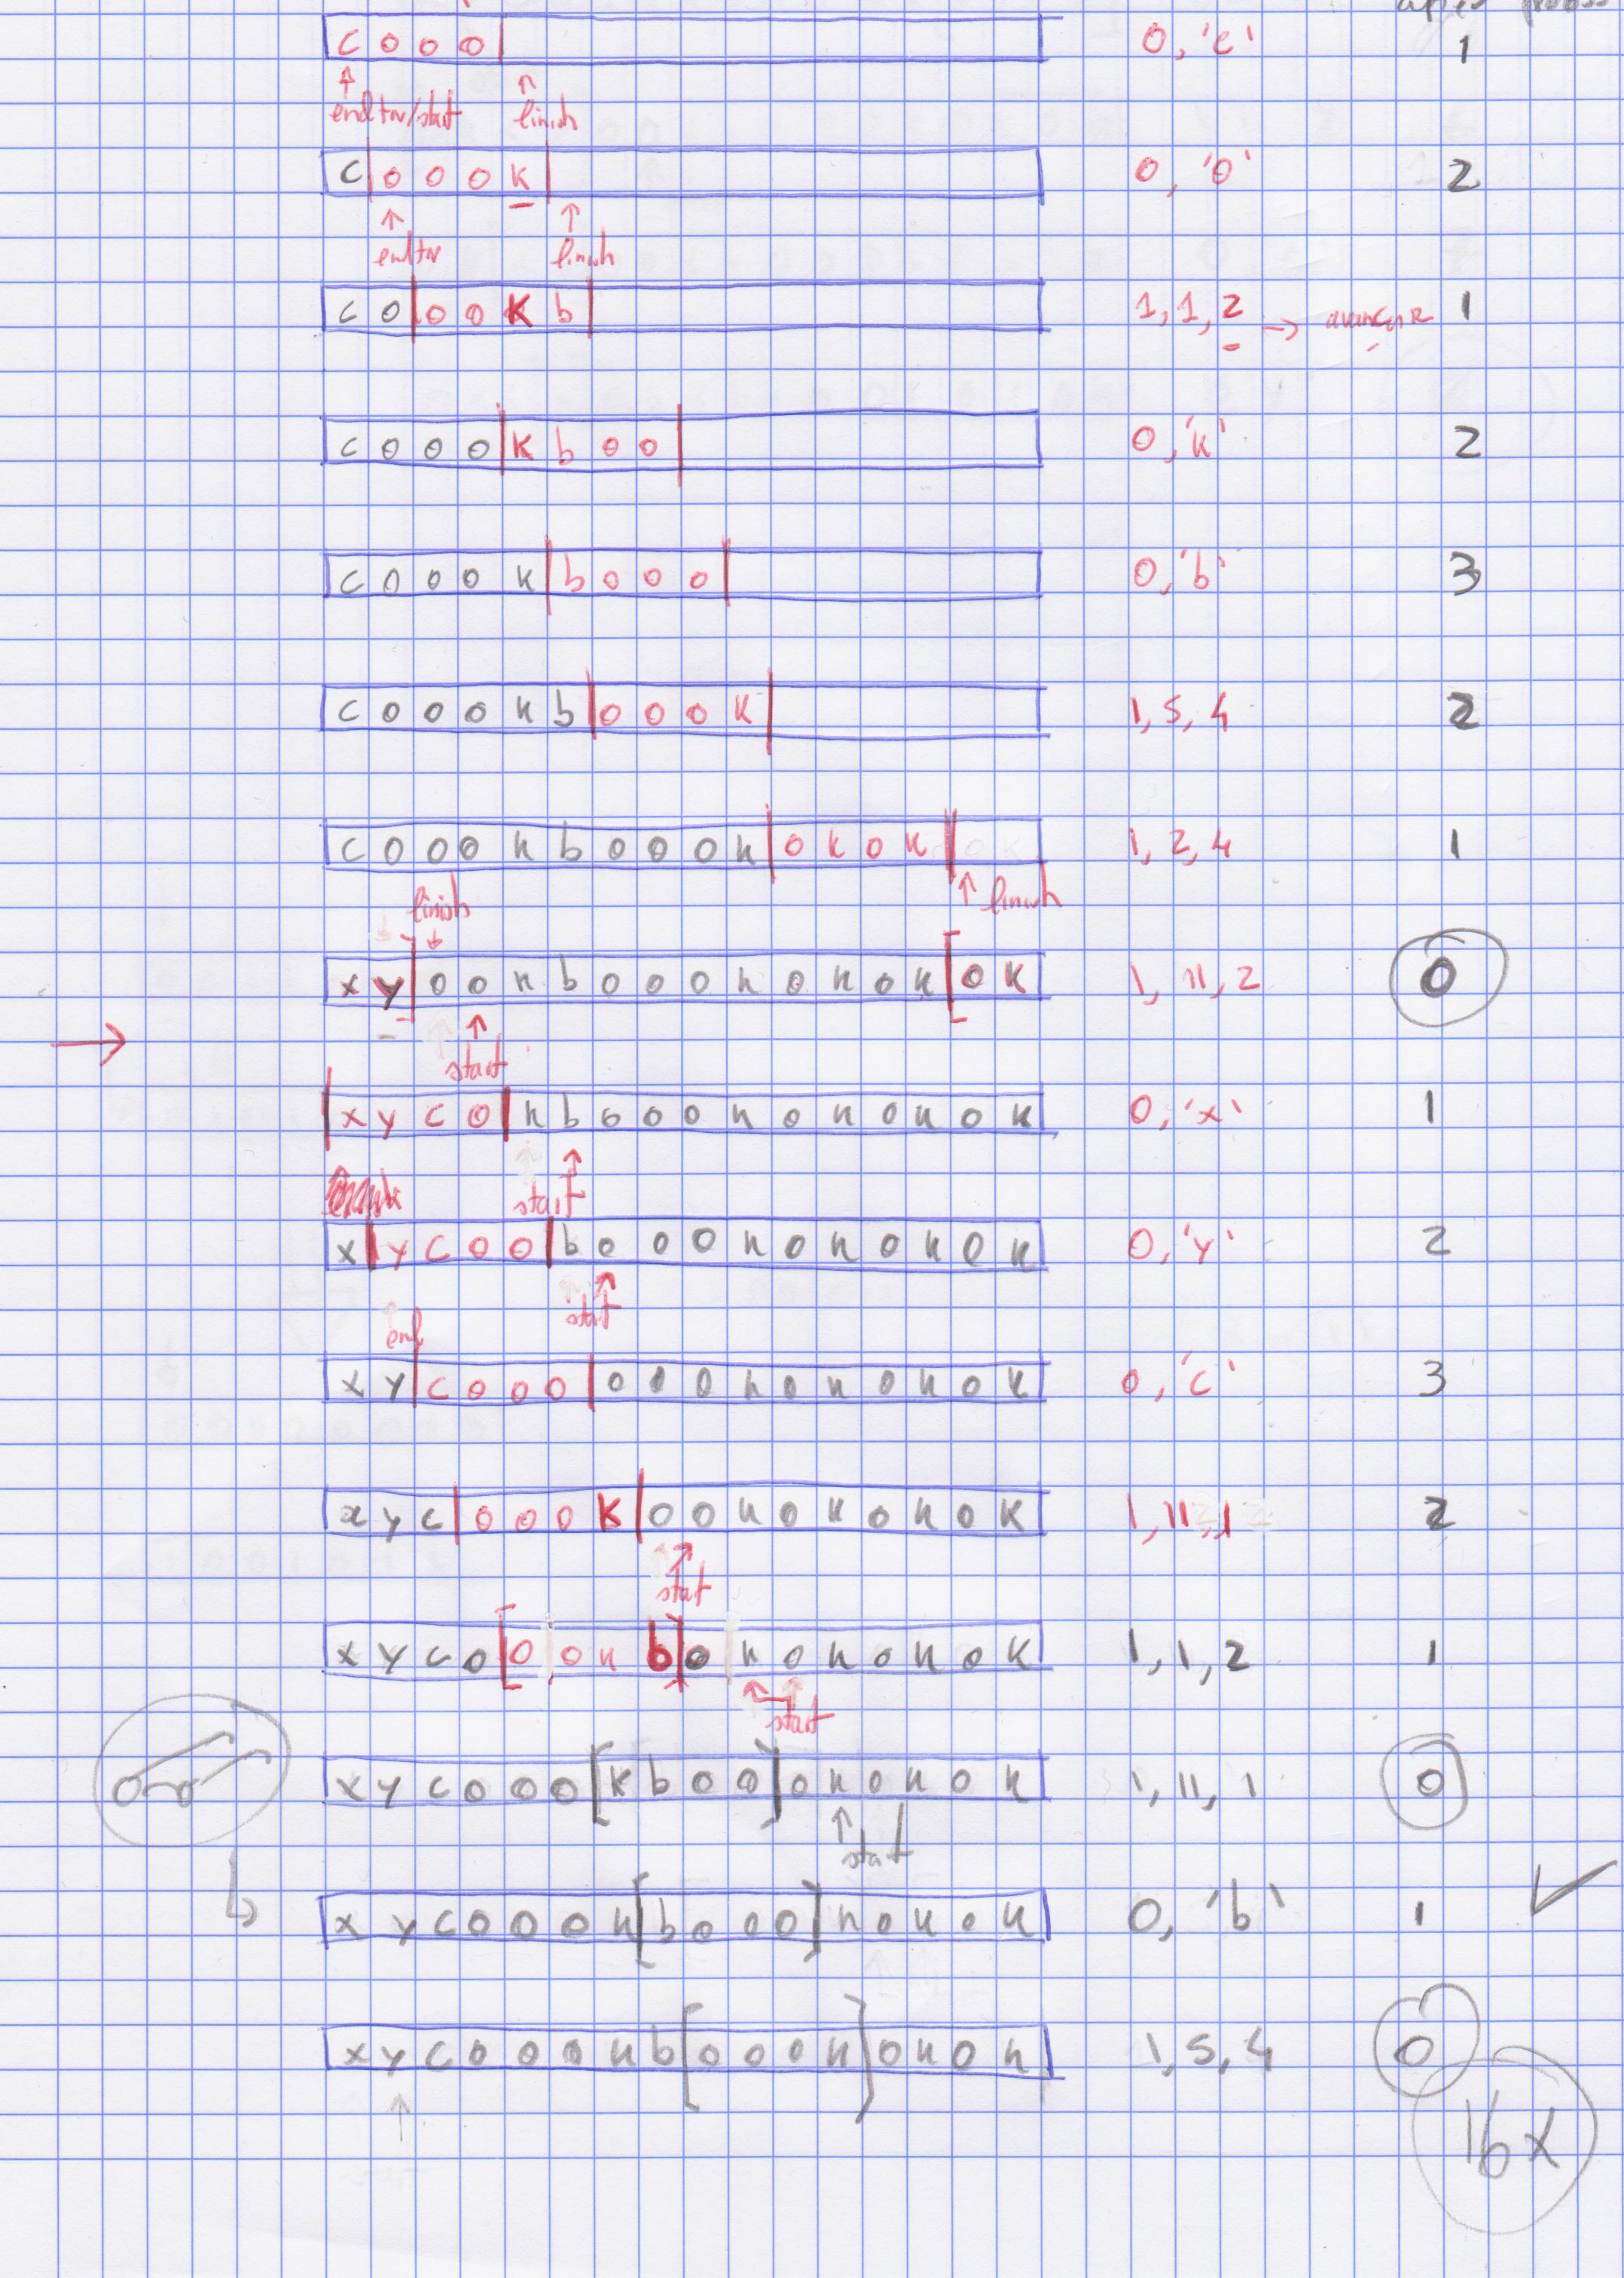 c o o o 0, 'c' 1
end tw/start finish
c o o o k 0, 'o' 2
end tw finish
c o o o k b 1, 1, 2 → 1
c o o o k b o o 0, 'k' 2
c o o o k b o o o 0, 'b' 3
c o o o k b o o o k 1, 5, 4 2
c o o o k b o o o k o k o k 1, 2, 4 1
finish finish
x y o o k b o o o k o k o k o k 1, 11, 2 0
→ start
x y c o k b o o o k o k o k o k 0, 'x' 1
start
x y c o o b o o o k o k o k o k 0, 'y' 2
start
end
x y c o o o o o o k o k o k o k 0, 'c' 3
x y c o o o k o o k o k o k o k 1, 11, 1 2
start
x y c o o o k b o k o k o k o k 1, 1, 2 1
start
x y c o o o k b o o o k o k o k 1, 11, 1 0
start
x y c o o o k b o o o k o k o k 0, 'b' 1
x y c o o o k b o o o k o k o k 1, 5, 4 0
16x